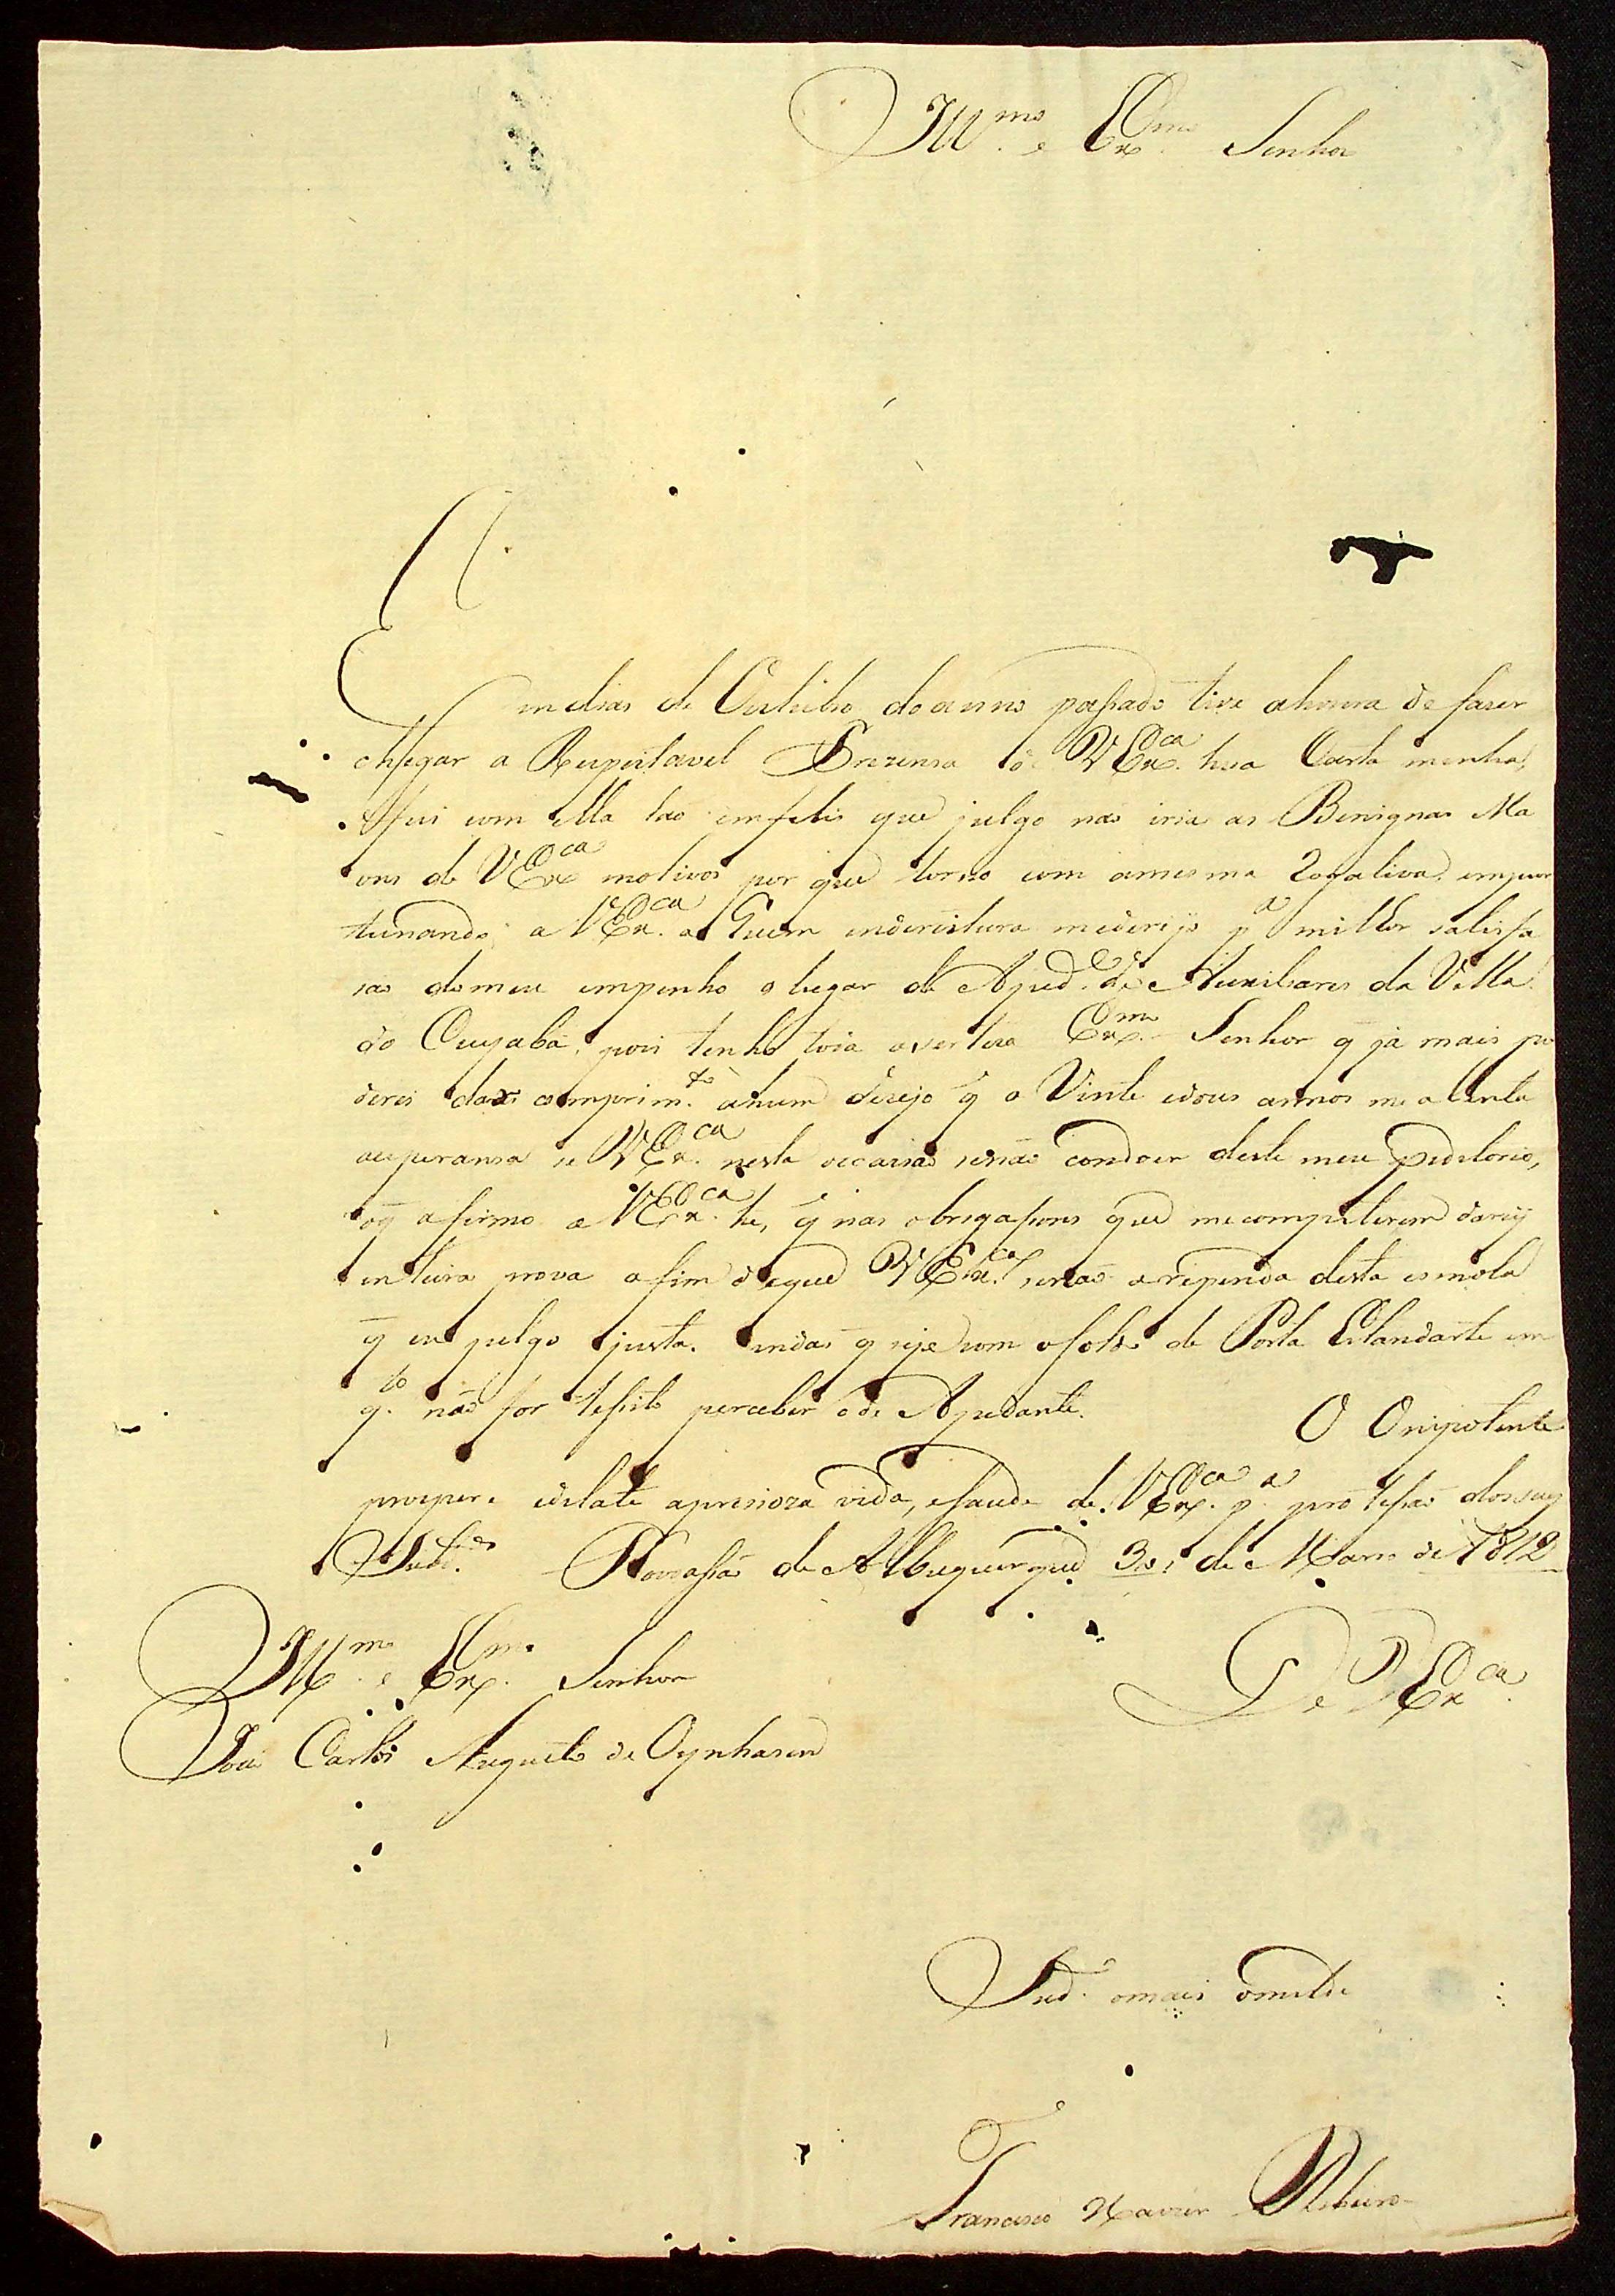 Ill.mo e Ex.mo Senhor
Em dias de Outubro do anno passado tive a honra de fazer
chegar a Respeitavel Prezensa de VEx.ca hua Carta minha,
fui com ella tão emfelis que julgo não iria as Benignas Ma
ons de VEx.ca motivos por que torno com amesma Rogativa. impor
tunando a VEx.ca a Quem indereitura mederijo p.a milhor satisfa
são domeu empenho o lugar de Ajud.e de Auxiliares da Villa
do Cuyabá. pois tenho toda acerteza Ex.mo Senhor q̃ já mais po
derei dar comprim.to ahum dezejo q̃ a Vinte edous annos me alenta
aesperansa se VEx.ca nesta occazião senão condoer deste meu peditorio,
oq̃ afirmo a VEx.ca he, q̃ nas obrigasoens que mecompetirem darej
inteira prova afim deque VEx.ca senão arependa desta esmola
q̃ eu julgo justa. indas q̃ seje com osoldo de Porta Estandarte em
q.to não for perceber o de Ajudante. O Onipotente
prospere edilate apresioza vida, esaude de VEx.ca p.a protesão dosseus
Subd.os Povoasão de Albuquerque 30 de Março de 1812
Ill.mo e Ex.mo Senhor
João Carlos Augusto de Oynhasen
De VEx.ca
Sud. omais omilde
Francisco Xavier Ribeiro